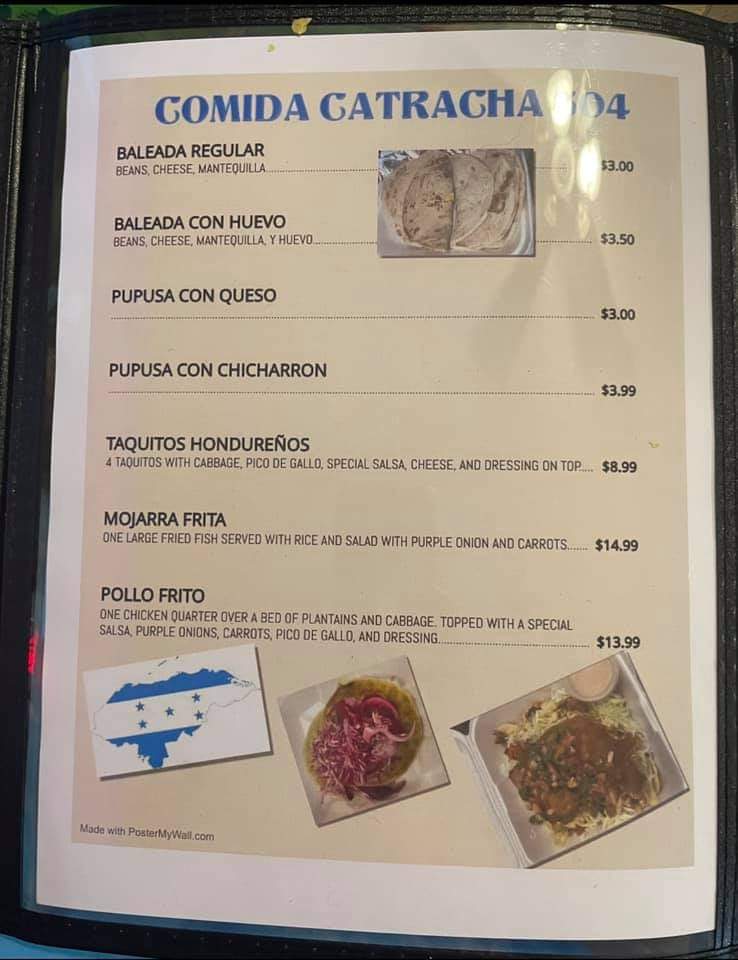 COMIDA CATRACHA 504
BALEADA REGULAR
BEANS, CHEESE, MANTEQUILLA $3.00
BALEADA CON HUEVO
BEANS, CHEESE, MANTEQUILLA, Y HUEVO $3.50
PUPUSA CON QUESO
$3.00
PUPUSA CON CHICHARRON
$3.99
TAQUITOS HONDUREÑOS
4 TAQUITOS WITH CABBAGE, PICO DE GALLO, SPECIAL SALSA, CHEESE, AND DRESSING ON TOP.... $8.99
MOJARRA FRITA
ONE LARGE FRIED FISH SERVED WITH RICE AND SALAD WITH PURPLE ONION AND CARROTS...... $14.99
POLLO FRITO
ONE CHICKEN QUARTER OVER A BED OF PLANTAINS AND CABBAGE. TOPPED WITH A SPECIAL
SALSA, PURPLE ONIONS, CARROTS, PICO DE GALLO, AND DRESSING $13.99
Made with PosterMyWall.com